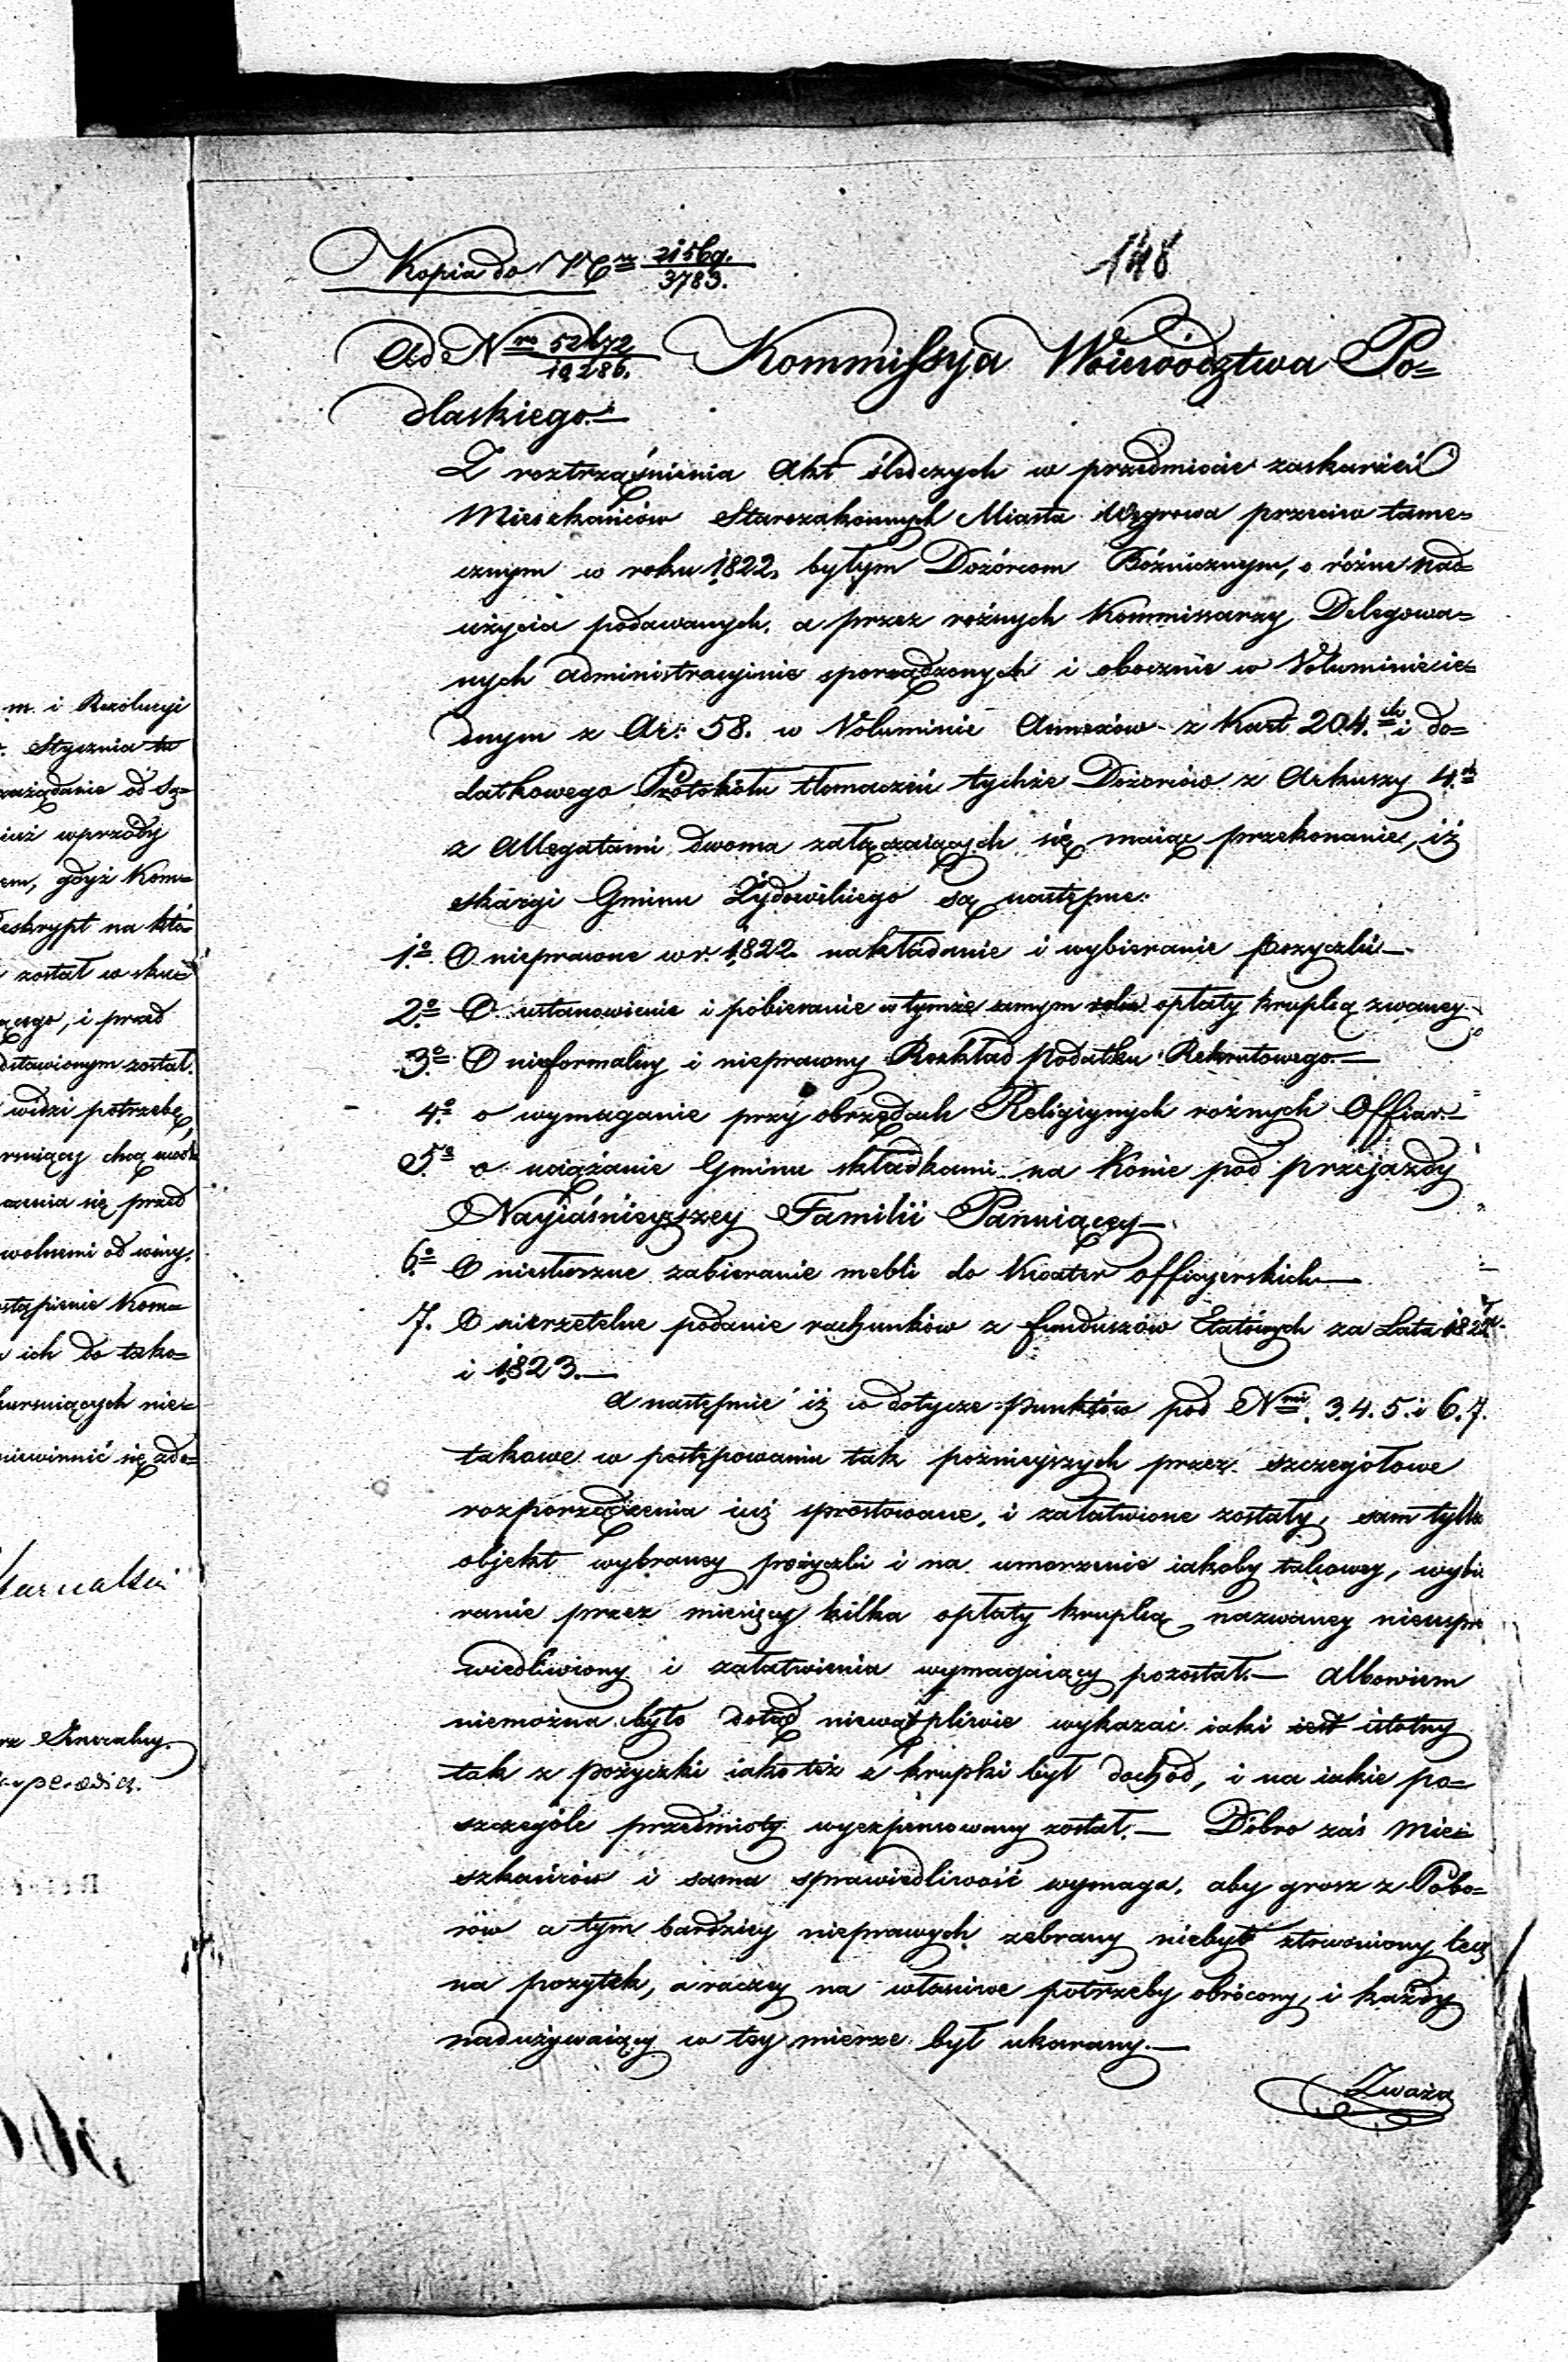 m. i Rezolucyi
Stycznia
żądanie od Są=
iuż wprzódy
em, gdyż Kom=
eskrypt na któ=
został w sku=
ącego, i przed
dstawionym został.
widzi potrzebę,
się przed
wolnemi od winy.
Kom=
ich do tako=
nie=
się
Kopia do N 21569. / 3783.
148
Ad Nro 52472 / 19286. Kommissya Woiewództwa Po=
dlaskiego.—
Z roztrząśnienia Akt śledczych w przedmiocie zaskarżeń
Mieszkańców Starozakonnych Miasta Węgrowa przeciw tame=
cznym w roku 1822, byłym Dozórcom Bóżnicznym, o różne nad=
użycia podawanych, a przez rożnych Kommissarzy Delegowa=
nych administracyjnie sporządzonych i obocznie w Voluminie ie=
dnym z Ar: 58. w Voluminie Annexów z Kart 204.ch i do=
datkowego Protokółu tłomaczeń tychże Dozorców z Arkuszy 4.ch
z Allegatami dwoma załączaiących się maiąc przekonanie, iż
skargi Gminu Żydowskiego są następne:
1.o O nieprawne w r. 1822 nakładanie i wybieranie pożyczki—
2.o O ustanowienie i pobieranie w tymże samym roku opłaty krupką zwaney
3.o O nieformalny i nieprawny Rozkład podatku Rekrutowego.—
4.o o wymaganie przy obrzędach Religiynych rożnych Offiar.—
5.o o uciążanie Gminu składkami na Konie pod przejazdy
Nayiaśnieyszey Familii Panuiącey—
6.o O niesłuszne zabieranie mebli do Kwater officyerskich—
7. O nierzetelne podanie rachunków z funduszów Etatowych za Lata 1822
i 1823.—
A następnie iż w dotycze punktów pod Nmi 3. 4. 5. i 6. 7.
takowe w postępowaniu tak poźnieyszych przez szczegółowe
rozporządzenia iuż sprostowane, i załatwione zostały, sam tylko
objekt wybraney pożyczki i na umorzenie iakoby takowey, wybie
ranie przez miesięcy kilka opłaty krupką nazwaney nieuspra
wiedliwiony i załatwienia wymagaiący pozostał.— Albowiem
niemożna było dotąd niewątpliwie wykazać iaki iest istotny
tak z pożyczki iako też z krupki był dochód, i na iakie po=
szczególe przedmioty wyexpensowany został.— Dobro zaś Mie=
szkańców i sama sprawiedliwość wymaga, aby grosz z Pobo=
rów a tym bardziey nieprawych zebrany niebył ztrwoniony lecz
na pożytek, a raczey na właściwe potrzeby obrócony, i każdy
nadużywaiący w tey mierze był ukarany.—
Zważa